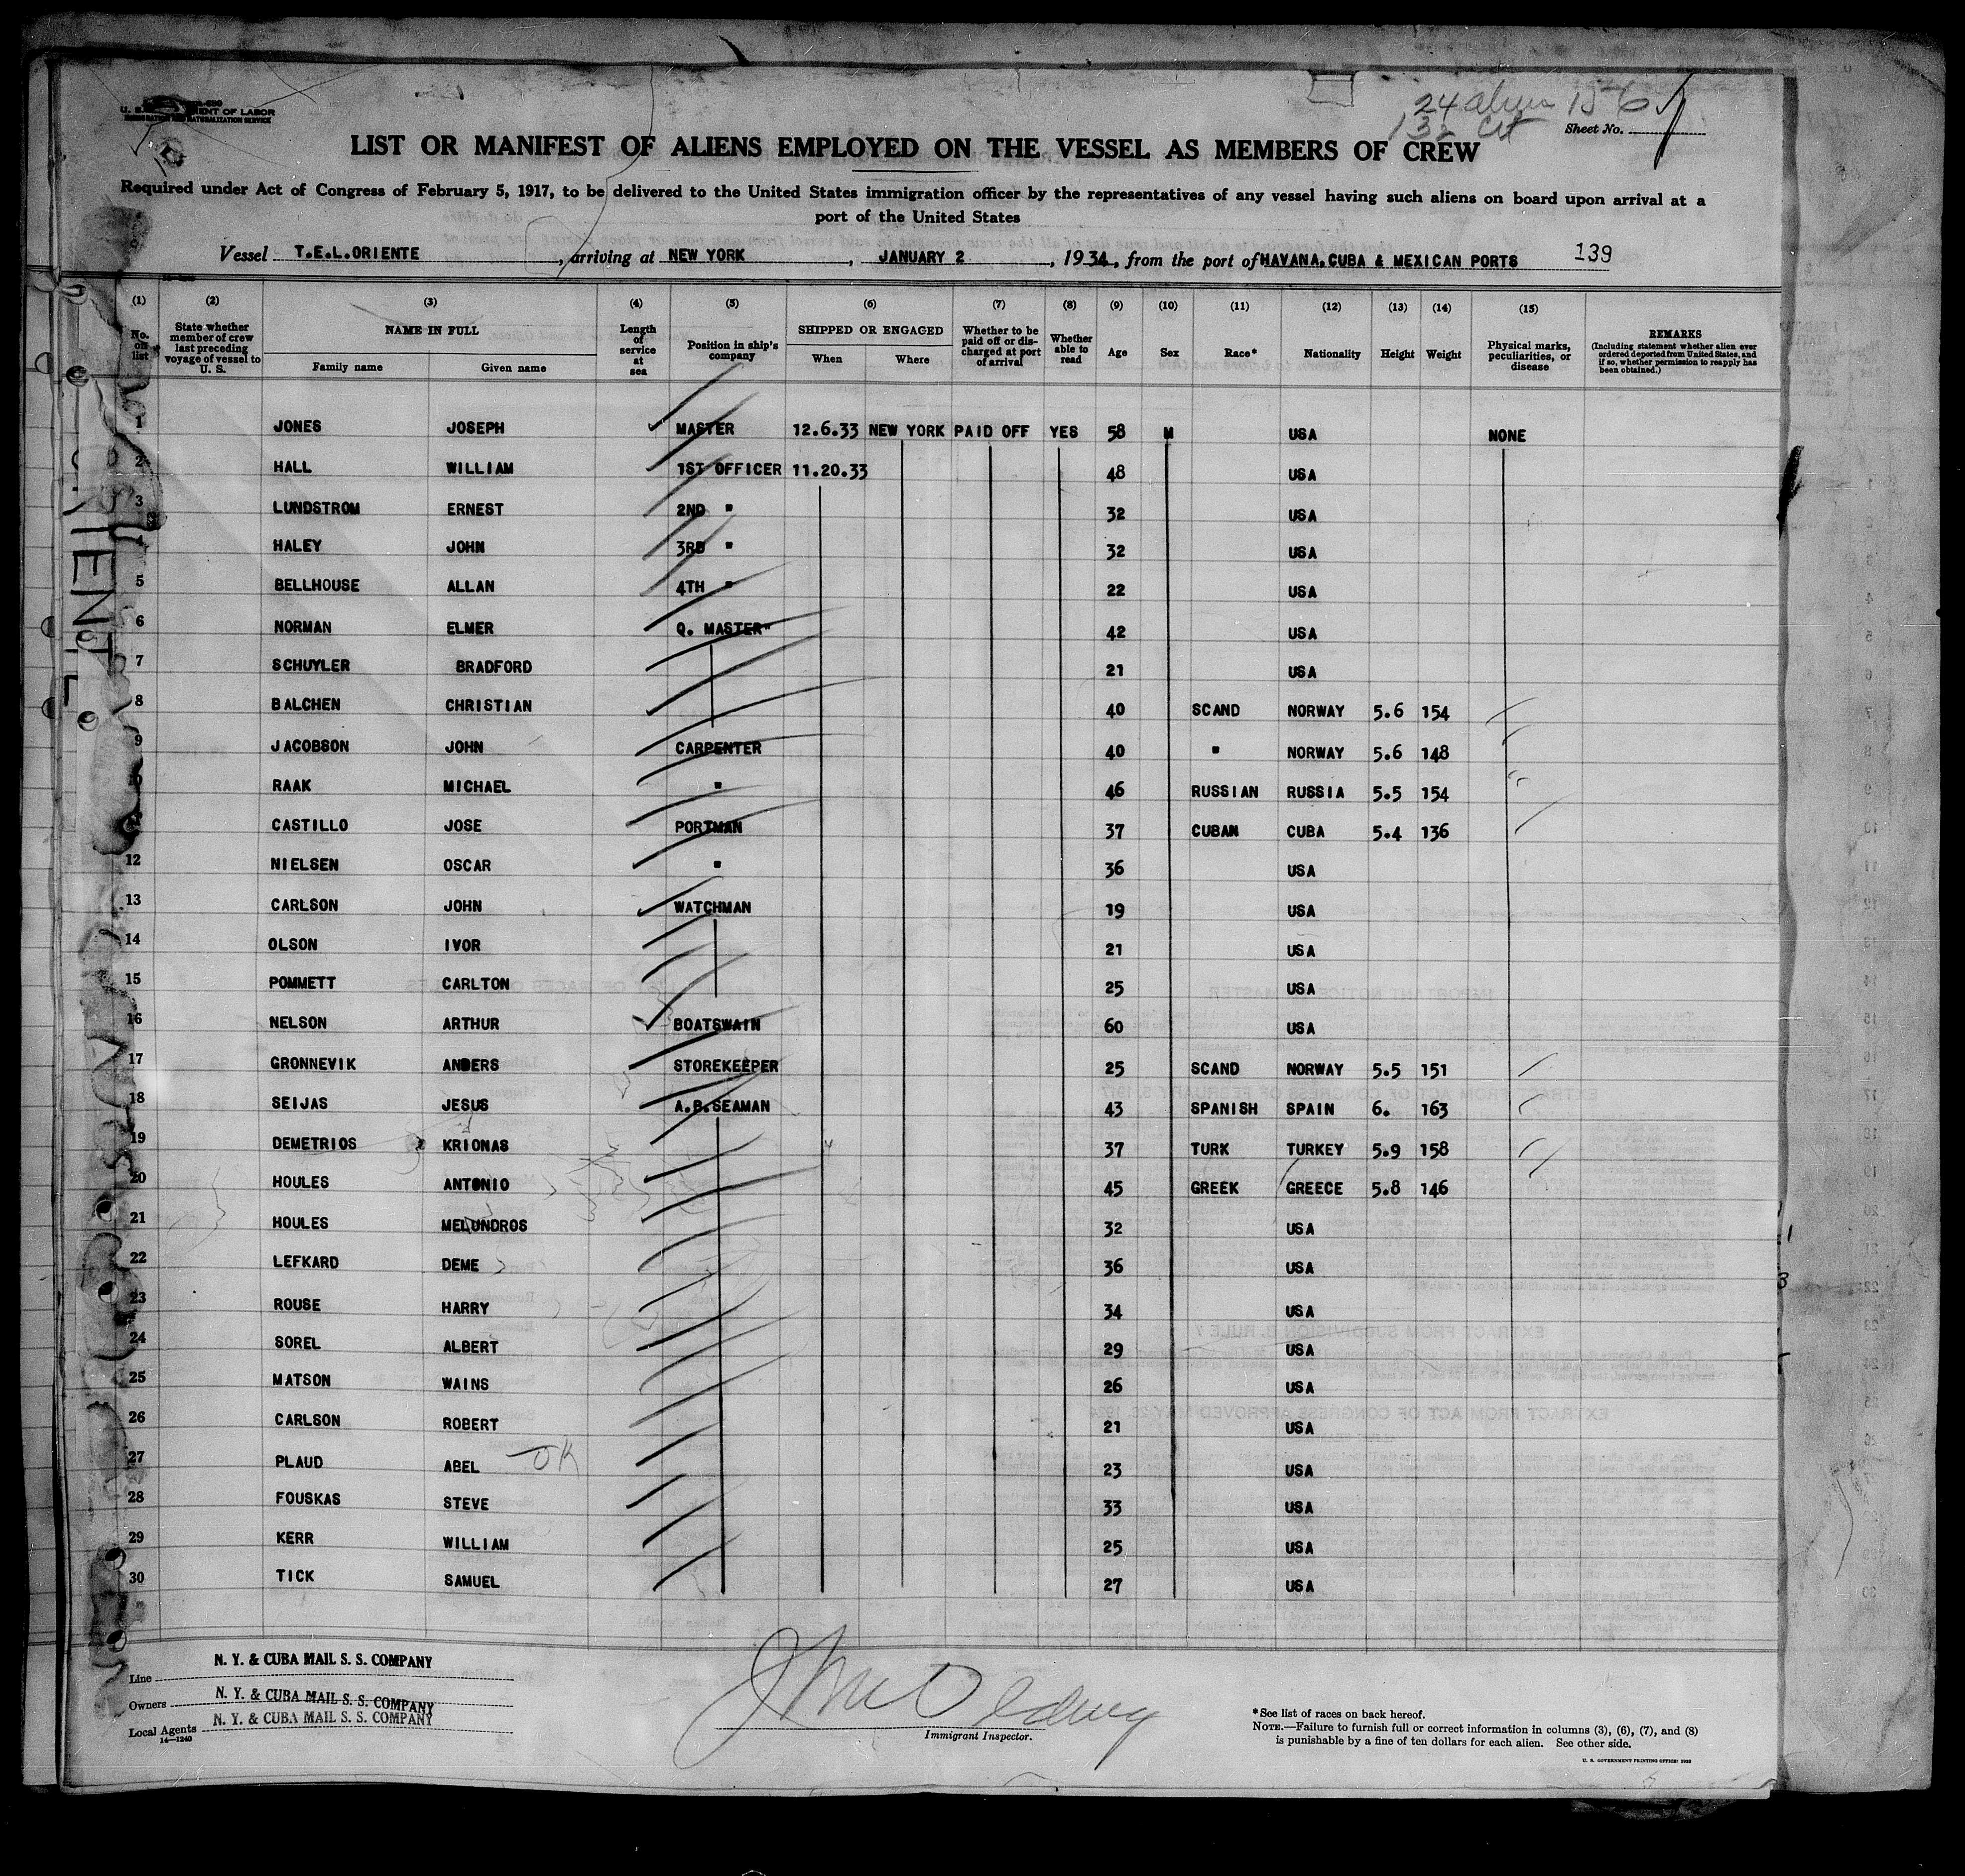 U. S. DEPARTMENT OF LABOR
IMMIGRATION AND NATURALIZATION SERVICE
24 alien 156
132 cit
Sheet No.
LIST OR MANIFEST OF ALIENS EMPLOYED ON THE VESSEL AS MEMBERS OF CREW
Required under Act of Congress of February 5, 1917, to be delivered to the United States immigration officer by the representatives of any vessel having such aliens on board upon arrival at a
port of the United States
Vessel T.E.L.ORIENTE, arriving at NEW YORK, JANUARY 2, 1934, from the port of HAVANA, CUBA & MEXICAN PORTS 139
(1) (2) (3) (4) (5) (6) (7) (8) (9) (10) (11) (12) (13) (14) (15)
No. on list
State whether member of crew last preceding voyage of vessel to U. S.
NAME IN FULL
Family name Given name
Length of service at sea
Position in ship's company
SHIPPED OR ENGAGED
When Where
Whether to be paid off or discharged at port of arrival
Whether able to read
Age
Sex
Race*
Nationality
Height
Weight
Physical marks, peculiarities, or disease
REMARKS
(Including statement whether alien ever ordered deported from United States, and if so, whether permission to reapply has been obtained.)
1 JONES JOSEPH MASTER 12.6.33 NEW YORK PAID OFF YES 58 M USA NONE
2 HALL WILLIAM 1ST OFFICER 11.20.33 48 USA
3 LUNDSTROM ERNEST 2ND " 32 USA
4 HALEY JOHN 3RD " 32 USA
5 BELLHOUSE ALLAN 4TH " 22 USA
6 NORMAN ELMER Q. MASTER" 42 USA
7 SCHUYLER BRADFORD 21 USA
8 BALCHEN CHRISTIAN 40 SCAND NORWAY 5.6 154
9 JACOBSON JOHN CARPENTER 40 " NORWAY 5.6 148
RAAK MICHAEL " 46 RUSSIAN RUSSIA 5.5 154
CASTILLO JOSE PORTMAN 37 CUBAN CUBA 5.4 136
12 NIELSEN OSCAR " 36 USA
13 CARLSON JOHN WATCHMAN 19 USA
14 OLSON IVOR 21 USA
15 POMMETT CARLTON 25 USA
16 NELSON ARTHUR BOATSWAIN 60 USA
17 GRONNEVIK ANDERS STOREKEEPER 25 SCAND NORWAY 5.5 151
18 SEIJAS JESUS A.B.SEAMAN 43 SPANISH SPAIN 6. 163
19 DEMETRIOS KRIONAS 37 TURK TURKEY 5.9 158
20 HOULES ANTONIO 45 GREEK GREECE 5.8 146
21 HOULES MELUNDROS 32 USA
22 LEFKARD DEME 36 USA
23 ROUSE HARRY 34 USA
24 SOREL ALBERT 29 USA
25 MATSON WAINS 26 USA
26 CARLSON ROBERT 21 USA
27 PLAUD ABEL OK 23 USA
28 FOUSKAS STEVE 33 USA
29 KERR WILLIAM 25 USA
30 TICK SAMUEL 27 USA
Line N. Y. & CUBA MAIL S. S. COMPANY
Owners N. Y. & CUBA MAIL S. S. COMPANY
Local Agents N. Y. & CUBA MAIL S. S. COMPANY
14—1240
Immigrant Inspector.
*See list of races on back hereof.
NOTE.—Failure to furnish full or correct information in columns (3), (6), (7), and (8)
is punishable by a fine of ten dollars for each alien. See other side.
U. S. GOVERNMENT PRINTING OFFICE: 1932